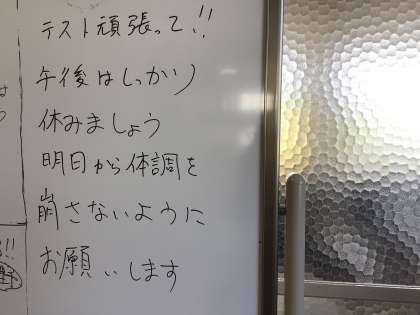 テスト頑張って!!
午後はしっかり
休みましょう
明日から体調を
崩さないように
お願いします